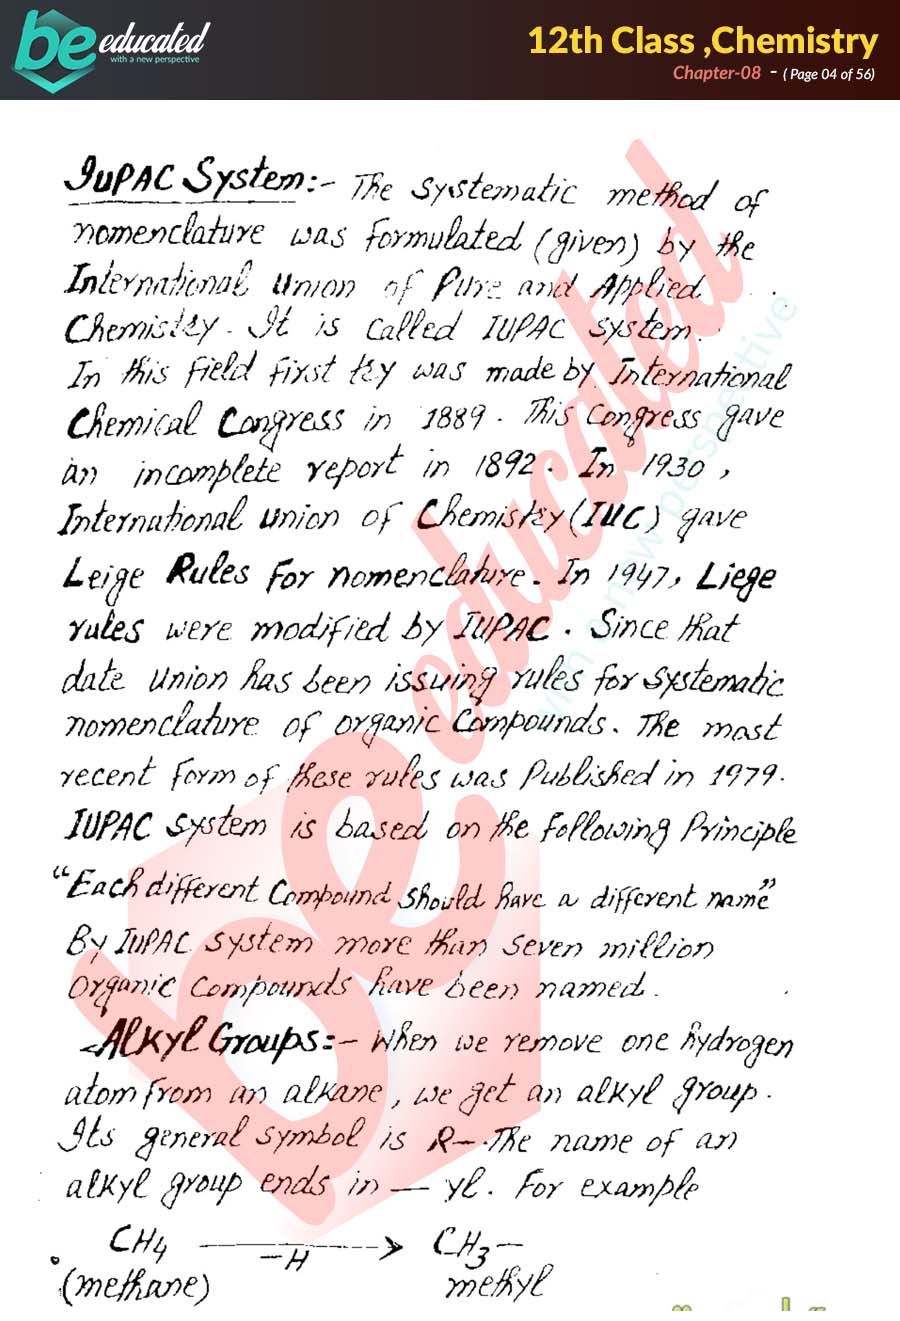 be educated
with a new perspective
12th Class ,Chemistry
Chapter-08 - ( Page 04 of 56)
IUPAC System:- The systematic method of
nomenclature was formulated (given) by the
International Union of Pure and Applied
Chemistry. It is called IUPAC system.
In this field first try was made by International
Chemical Congress in 1889. This Congress gave
an incomplete report in 1892. In 1930,
International Union of Chemistry (IUC) gave
Leige Rules for nomenclature. In 1947, Liege
rules were modified by IUPAC. Since that
date Union has been issuing rules for systematic
nomenclature of organic compounds. The most
recent form of these rules was Published in 1979.
IUPAC system is based on the following Principle
"Each different Compound should have a different name"
By IUPAC system more than seven million
Organic Compounds have been named.
Alkyl Groups:- When we remove one hydrogen
atom from an alkane, we get an alkyl group.
Its general symbol is R-. The name of an
alkyl group ends in — yl. For example
CH4 —-H—> CH3—
(methane) methyl
be educated
with a new perspective